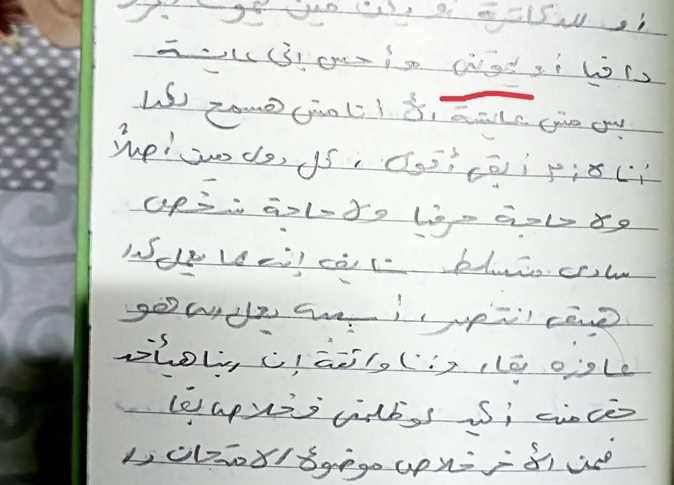 أو للدكاترة
دافيا أو يموتني وأحس إني عايشة
بس مش عايشة، لأ أنا مش هسمح بكدا
أنا لازم أبقى أقوى، كل دول مين أصلاً
ولا حاجة حرفيا ولا حاجة شخص
سادي متسلط شايف إنه لما يعمل كدا
هيبقى انتصر، أسيبه يعمل اللي هو
عاوزه بقا، وأنا واثقة إن ربنا هيأخد
حقي منه أكيد لو ظلمني فخلاص بقا
فمن الأخر خلاص موضوع الامتحان دا